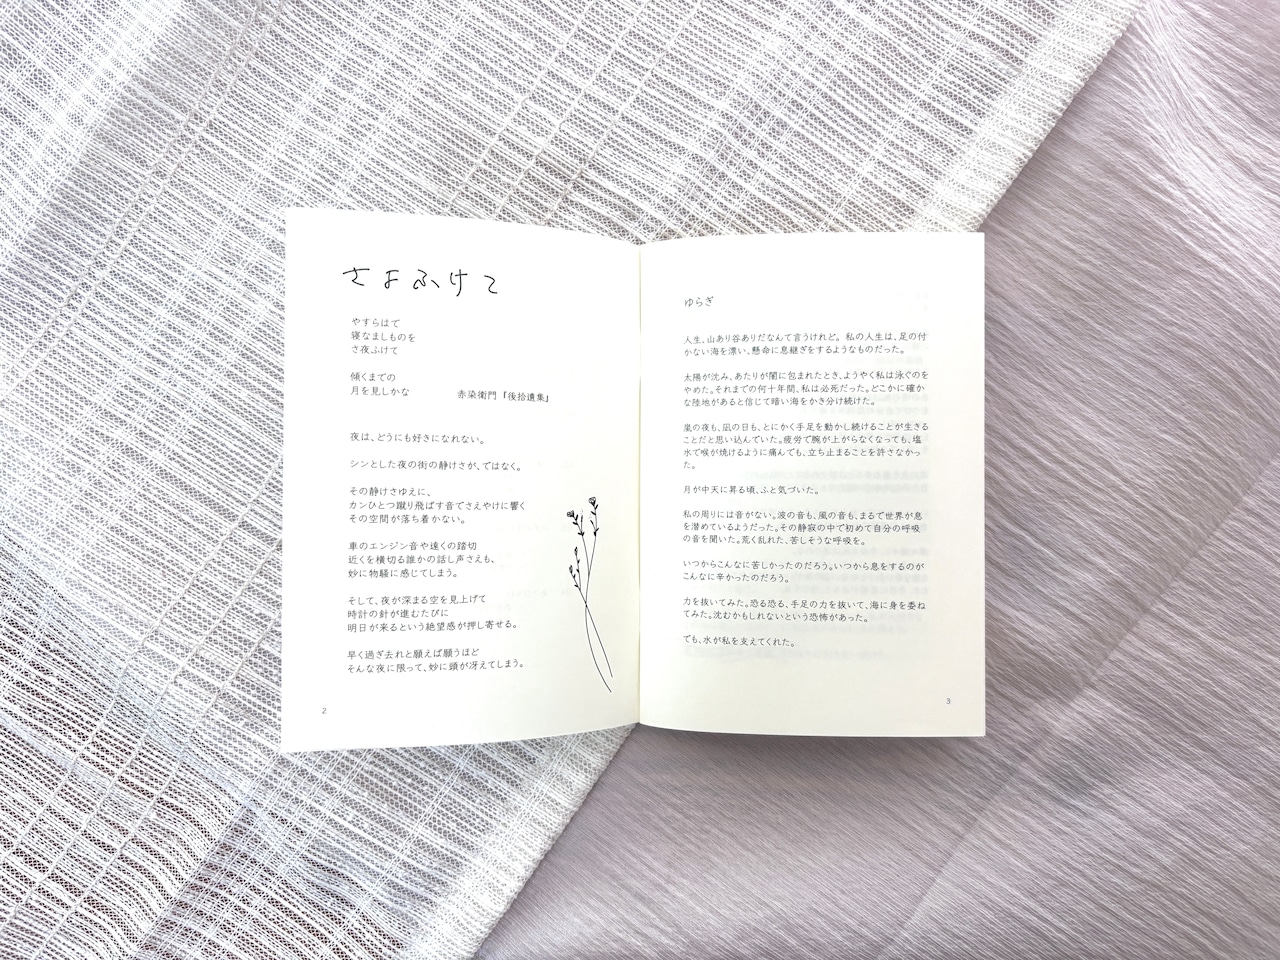 さよふけて
やすらはて
寝なましものを
さ夜ふけて
傾くまでの
月を見しかな
赤染衛門『後拾遺集』
夜は、どうにも好きになれない。
シンとした夜の街の静けさが、ではなく。
その静けさゆえに、
カンひとつ蹴り飛ばす音でさえやけに響く
その空間が落ち着かない。
車のエンジン音や遠くの踏切
近くを横切る誰かの話し声さえも、
妙に物騒に感じてしまう。
そして、夜が深まる空を見上げて
時計の針が進むたびに
明日が来るという絶望感が押し寄せる。
早く過ぎ去れと願えば願うほど
そんな夜に限って、妙に頭が冴えてしまう。
2
ゆらぎ
人生、山あり谷ありだなんて言うけれど。私の人生は、足の付
かない海を漂い、懸命に息継ぎをするようなものだった。
太陽が沈み、あたりが闇に包まれたとき、ようやく私は泳ぐのを
やめた。それまでの何十年間、私は必死だった。どこかに確か
な陸地があると信じて暗い海をかき分け続けた。
嵐の夜も、凪の日も、とにかく手足を動かし続けることが生きる
ことだと思い込んでいた。疲労で腕が上がらなくなっても、塩
水で喉が焼けるように痛んでも、立ち止まることを許さなかっ
た。
月が中天に昇る頃、ふと気づいた。
私の周りには音がない。波の音も、風の音も、まるで世界が息
を潜めているようだった。その静寂の中で初めて自分の呼吸
の音を聞いた。荒く乱れた、苦しそうな呼吸を。
いつからこんなに苦しかったのだろう。いつから息をするのが
こんなに辛かったのだろう。
力を抜いてみた。恐る恐る、手足の力を抜いて、海に身を委ね
てみた。沈むかもしれないという恐怖があった。
でも、水が私を支えてくれた。
3